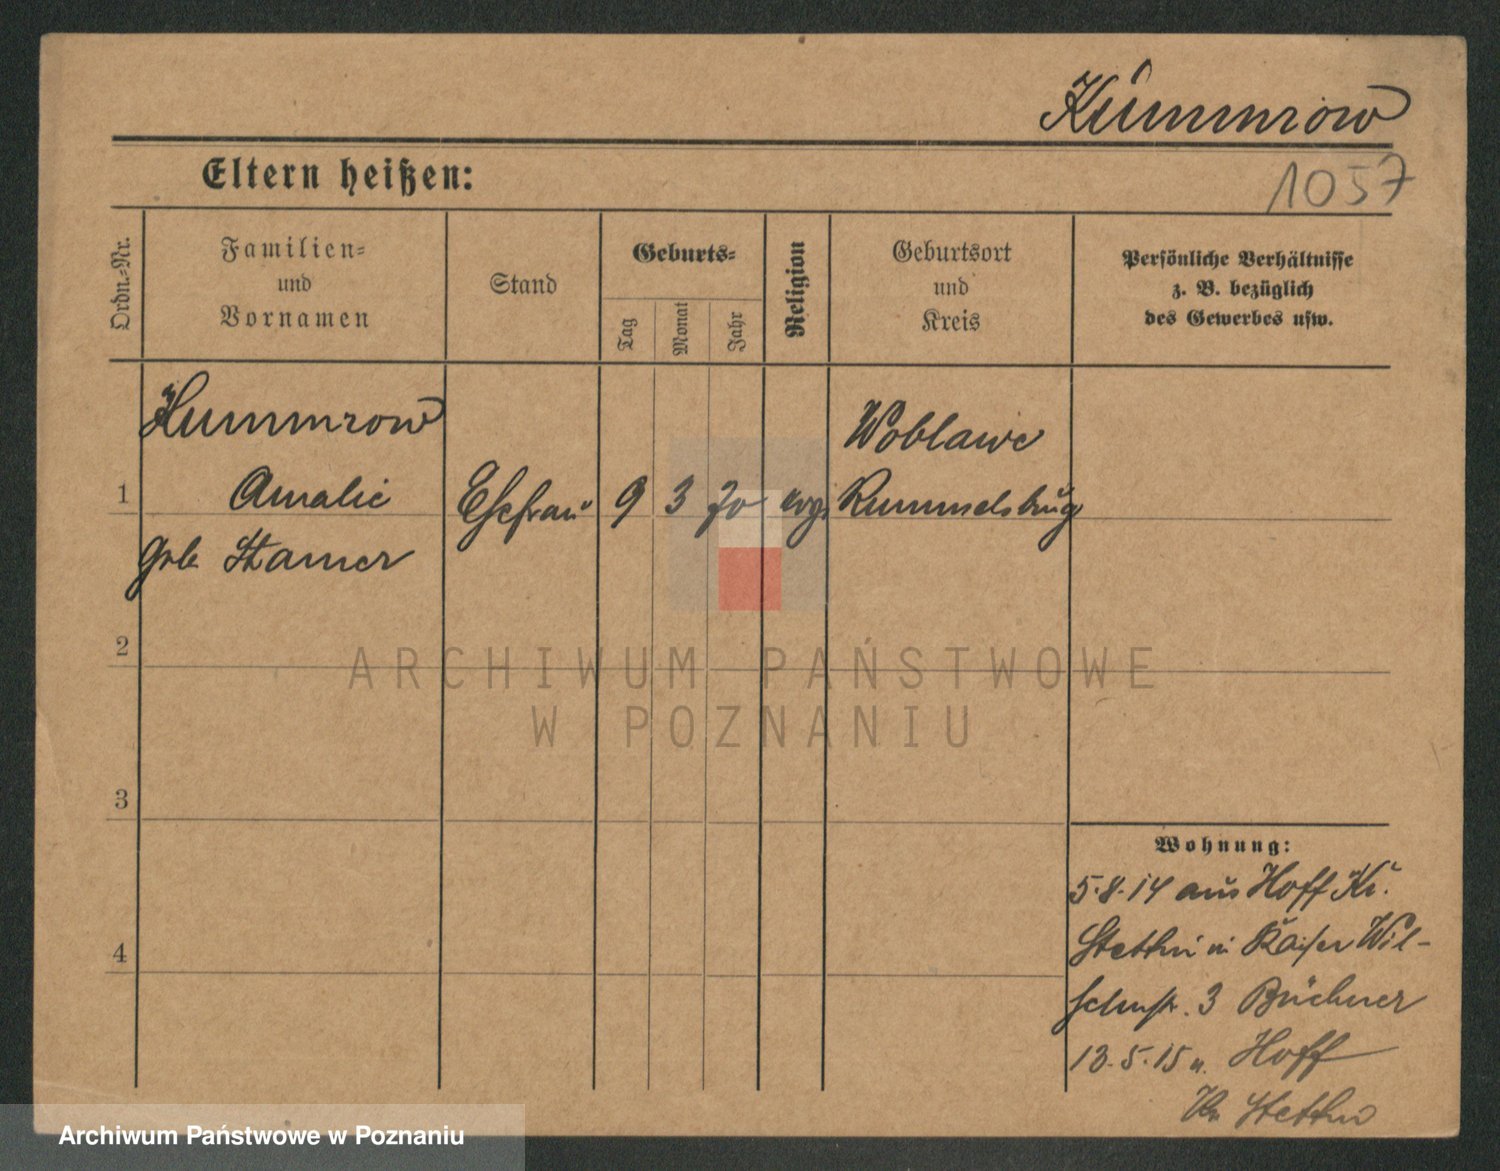 Kümmrow
1057
Eltern heißen:
Ordn.-Nr.
Familien-
und
Vornamen
Stand
Geburts-
Tag
Monat
Jahr
Religion
Geburtsort
und
Kreis
Persönliche Verhältnisse
z. B. bezüglich
des Gewerbes usw.
Kummrow
Woblawe
1 Amalie Ehefrau 9 3 70 evg. Rummelsbug
geb. Stamer
2
3
4
Wohnung:
5.8.14 aus Hoff Kr.
Stettin in Kaiser Wil-
helmstr. 3 Büchner
13.5.15 n. Hoff
Kr Stettin
ARCHIWUM PAŃSTWOWE
W POZNANIU
Archiwum Państwowe w Poznaniu